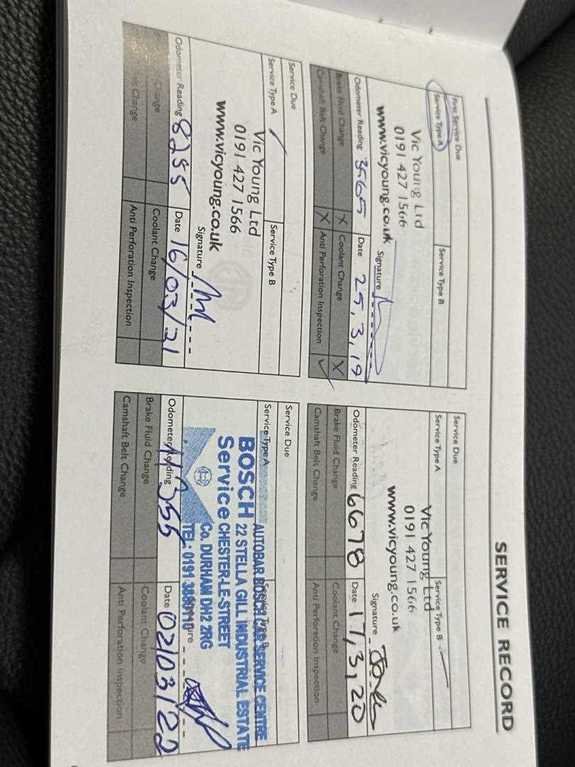 SERVICE RECORD
First Service Due
Service Type A
Service Type B
Vic Young Ltd
0191 427 1566
www.vicyoung.co.uk
Signature
Odometer Reading 3565 Date 25,3,19
Brake Fluid Change X Coolant Change X
Camshaft Belt Change X Anti Perforation Inspection ✓
Service Due
Service Type A
Service Type B ✓
Vic Young Ltd
0191 427 1566
www.vicyoung.co.uk
Signature
Odometer Reading 6678 Date 17,3,20
Brake Fluid Change Coolant Change
Camshaft Belt Change Anti Perforation Inspection
Service Due
Service Type A ✓
Service Type B
Vic Young Ltd
0191 427 1566
www.vicyoung.co.uk
Signature
Odometer Reading 8255 Date 16/03/21
Coolant Change
Change Anti Perforation Inspection
Service Due
Service Type A
AUTOBAR BOSCH CAR SERVICE CENTRE
22 STELLA GILL INDUSTRIAL ESTATE
BOSCH
Service
CHESTER-LE-STREET
Co. DURHAM DH2 2RG
TEL: 0191
Odometer Reading Date 02/03/22
Brake Fluid Change Coolant Change
Camshaft Belt Change Anti Perforation Inspection